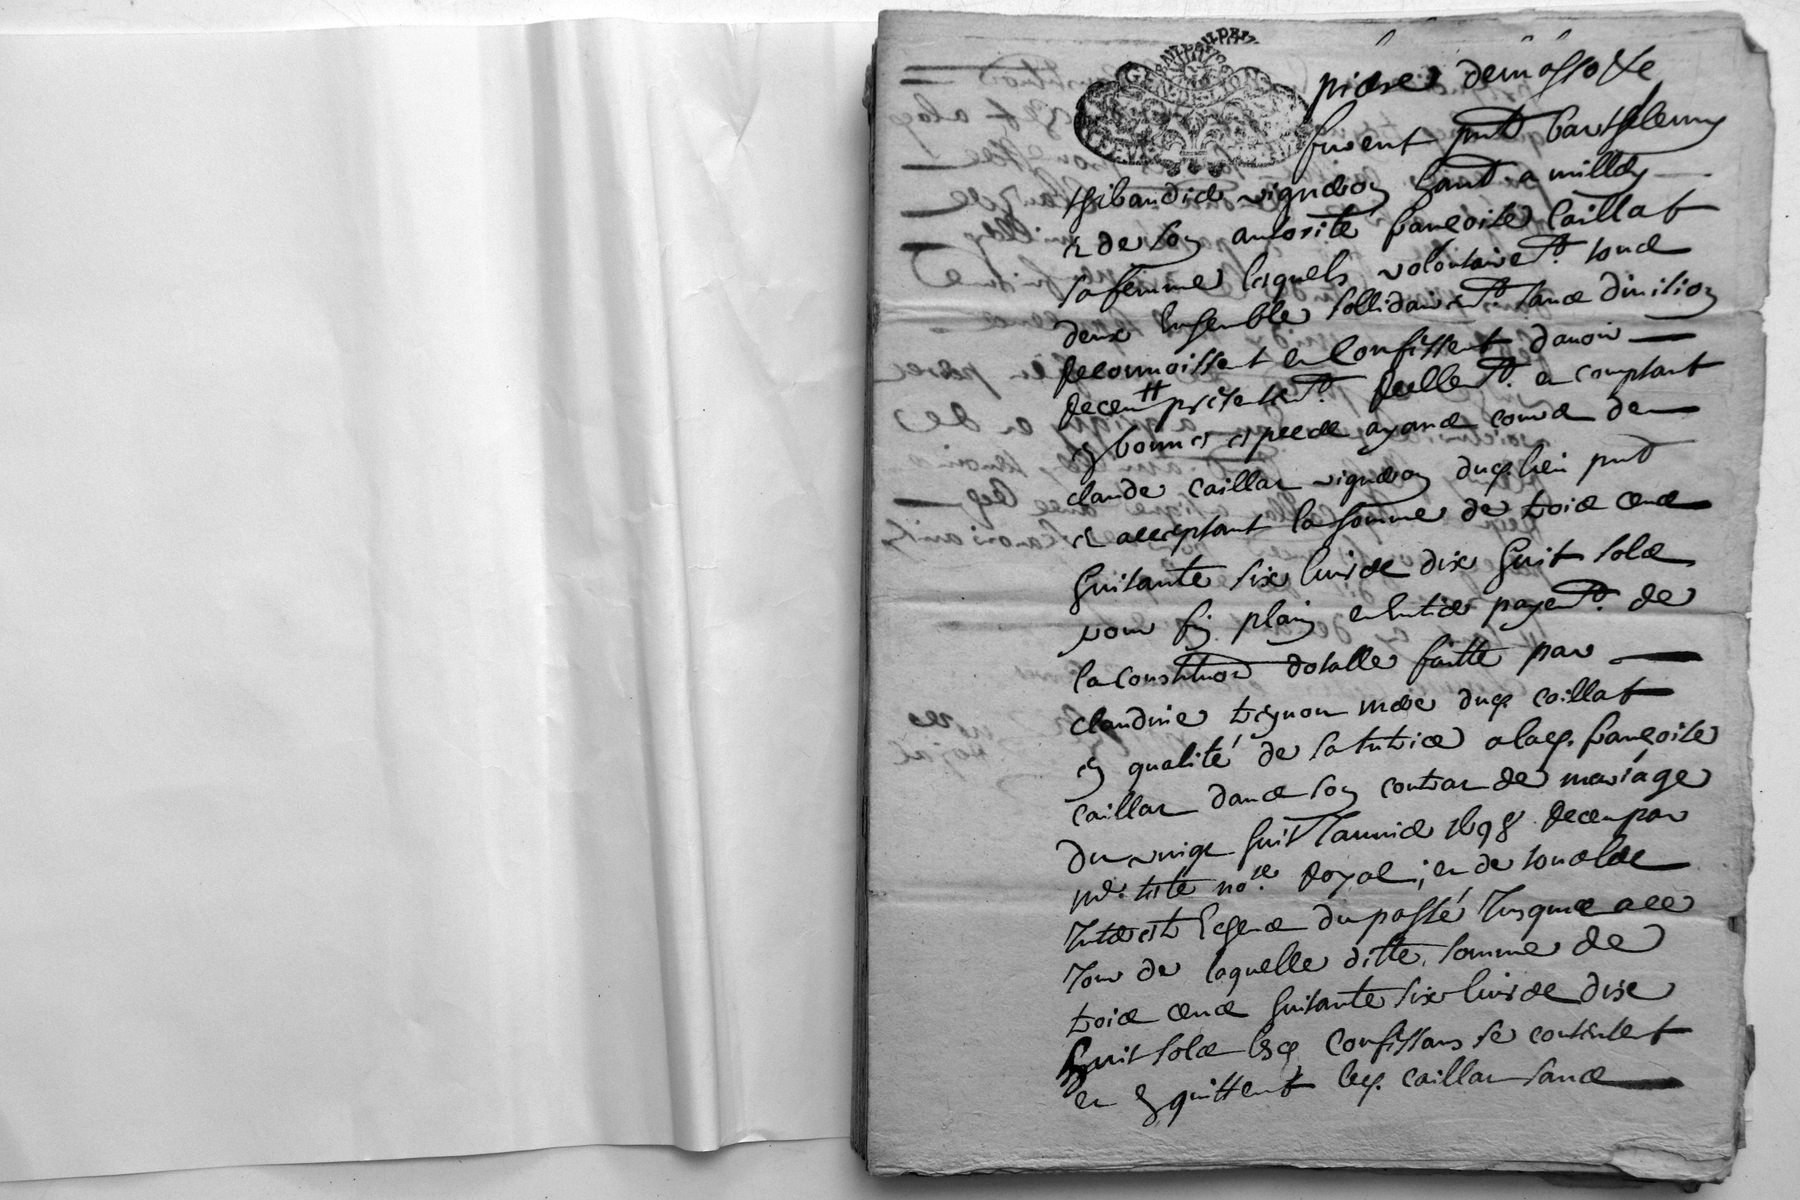 GENERALITE DE LION
furent pnt barthelemy
thibaudier vigneron hant. a milly
& de son authorité françoise Caillat
sa femme lesquels volontairemt. tous
deux ensemble sollidairemt. sans division
Reconnoissent en Confessent davoir
Receu presentemt. Reellemt. en comptant
en bonnes espece ayans cours de
claude caillat vigneron dud. lieu pnt
et acceptant la somme de trois cens
huitante six livres dix huit solz
pour fin plain entier payemt. de
la constituon dotalle faitte par
claudine mere dud. caillat
en qualité de sa tutrice a lad. françoise
caillat dans son contrat de mariage
du vingt huit Lannée 1698 Receu par
me. tete nore. Royal, en de tous les
Interest Legens du passé Jusques a ce
Jour de laquelle ditte somme de
trois cens huitante six livres dix
huit solz lesd. confessans se contentent
en en quittent led. caillat sans